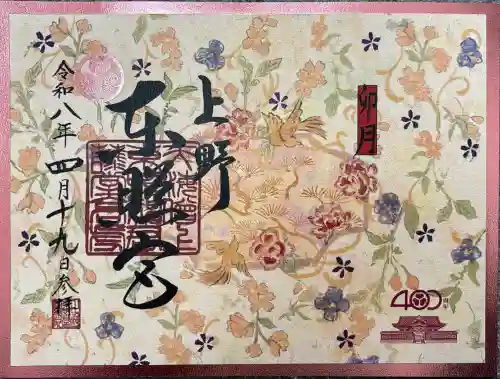 卯月
上野
東照宮
令和八年四月十九日参拝
400